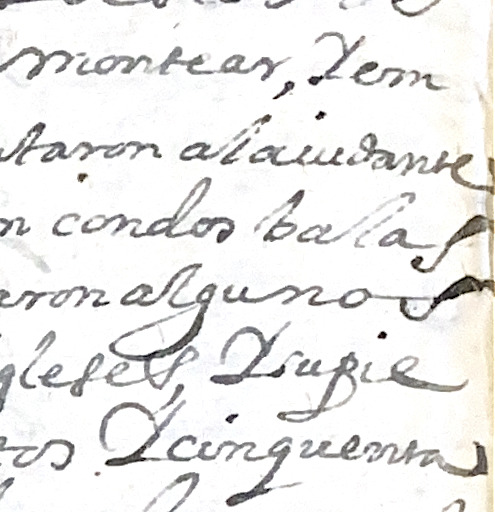 montear, Y em
taron al aiudante
n con dos balas
aron algunos
gleses, Y supie
tos Y cinquenta